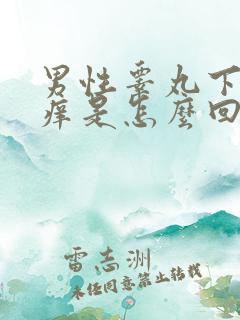 男性睾丸下
痒是怎麼回
雷志洲
未经同意禁止转载